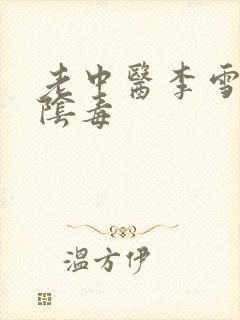 老中醫李雪
陰毒
溫方伊